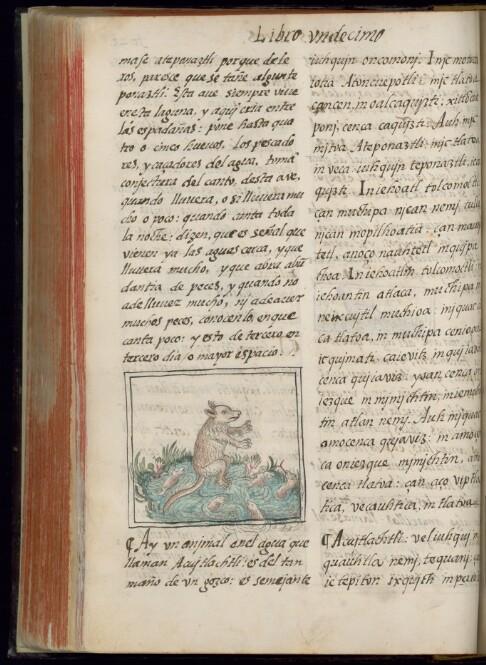 Libro vndecimo
mase ateponaztli porque de le
xos, paresce que se tañe algun te
ponaztli. Esta aue siempre viue
en esta laguna, y aqui cria entre
las espadañas: pone hasta qua
tro o cinco hueuos. Los pescado
res, y caçadores del agua, tomã
conjectura del canto, desta aue,
quando llouera, o si llouera mu
cho o poco: quando canta toda
la noche: dizen, que es señal que
vienen ya las aguas cerca, y que
llouera mucho, y que aura abũ
dantia de peces, y quando no
a de llouez mucho, nj a de auer
muchos peces, conocenlo, en que
canta poco: y esto de tercero en
tercero dia, o mayor espacio.
¶ Ay vn animal en el agua que
llaman Acuitlachtli: es del tan
maño de vn gozco: es semejante
iuhqujn oncomonj. Inje
iotia Atoncuepotli: injc tlatoa,
cencen, in oalcaqujzti,
ponj, cenca caqujzti. Auh injc
mjtoa Ateponaztli: injc tlatoa,
in veca iuhqujn teponaztli,
qujzti. In iehoatl tolcomoctli
can muchipa njcan nemj,
njcan mopilhoatia
tetl, anoço nauhtetl
thoa. In iehoatl in tolcomoctli
iehoantin atlaca, muchipa
nezcuitil muchioa:
ca tlatoa, in muchipa
ic qujmati, ca ie vitz
cenca qujiaviz: yoan cenca
iezque in mjmjchtin,
tin atlan nemj. Auh
amo cenca qujaviz: in amo
ca onjezque mjmjchtin,
cenca tlatoa: çan, aço viptla
tica, vecauhtica, in tlatoa
¶ Acuitlachtli: vel iuhquj
quauhtla nemj, tequanj:
ic tepiton